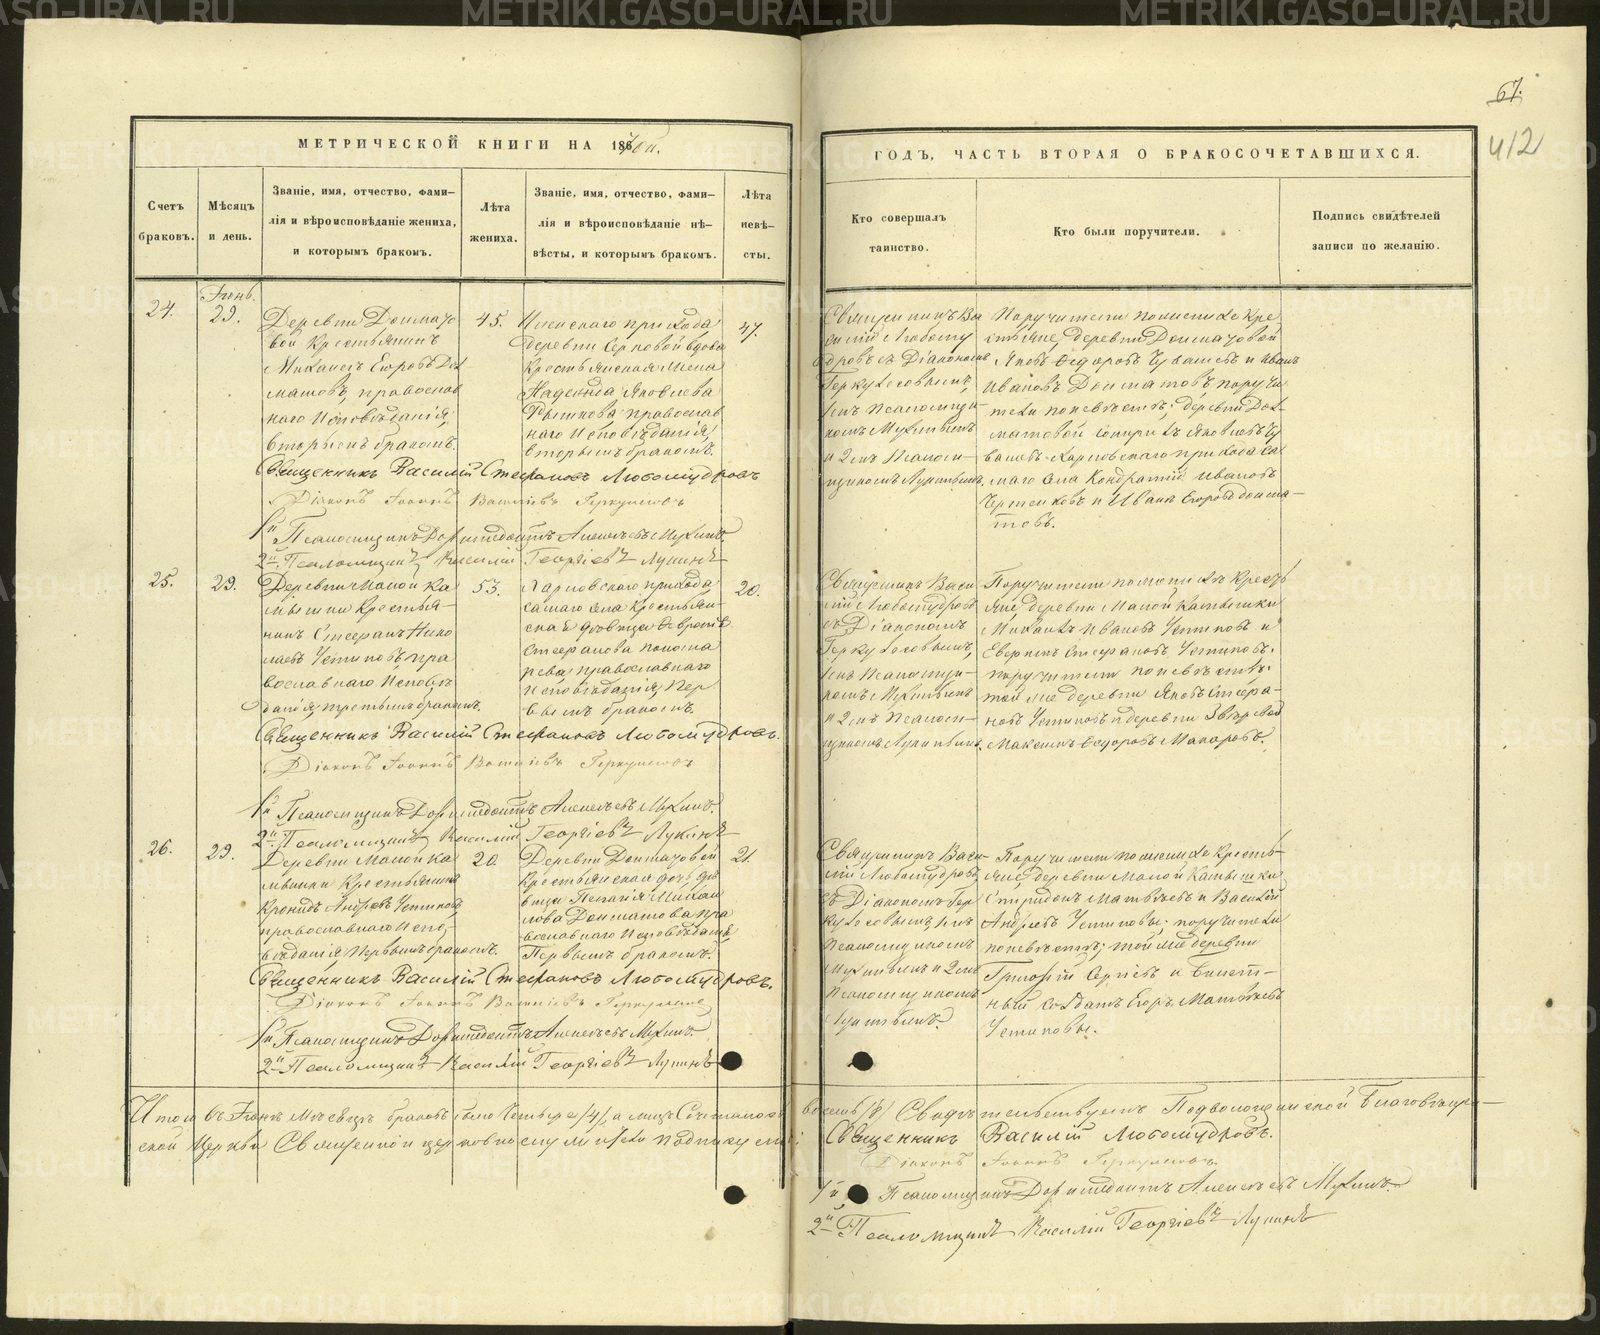 METRIKI.GASO-URAL.RU
67.
412
МЕТРИЧЕСКОЙ КНИГИ НА 186
ГОДЪ, ЧАСТЬ ВТОРАЯ О БРАКОСОЧЕТАВШИХСЯ.
Счетъ браковъ.
Мѣсяцъ и день.
Званіе, имя, отчество, фами-
лія и вѣроисповѣданіе жениха,
и которымъ бракомъ.
Лѣта жениха.
Званіе, имя, отчество, фами-
лія и вѣроисповѣданіе не-
вѣсты, и которымъ бракомъ.
Лѣта невѣ-
сты.
Кто совершалъ
таинство.
Кто были поручители.
Подпись свидѣтелей
записи по желанію.
24.
29.
Деревни Долмато
вой Крестьянинъ
Михаилъ Егоровъ Дол
матовъ, православ
наго Исповѣданія,
вторымъ бракомъ.
45.
прихода
деревни вдова
Крестьянская жена
Надежда Яковлева
православ
наго Исповѣданія,
вторымъ бракомъ.
47.
Священникъ Ва
силій Любому
дровъ съ Діакономъ
Геркулесовымъ,
1мъ Псаломщи-
комъ Мухинымъ
и 2мъ Псалом-
щикомъ Лукинымъ.
Поручители по женихѣ Кре
стьяне, деревни Долматовой
Яковъ Ѳедоровъ и Иванъ
Ивановъ Долматовъ, поручи
тели по невѣстѣ; деревни Дол
матовой Яковлевъ
прихода са
маго села Кондратій Ивановъ
и Иванъ Егоровъ Долма-
товъ.
Священникъ Василій Стефановъ Любомудровъ
Діаконъ Іоаннъ Васильевъ Геркулесовъ
1й Псаломщикъ Доримедонтъ Алексѣевъ Мухинъ.
2й Псаломщикъ Василій Георгіевъ Лукинъ
25.
29.
Деревни Малой Ка
мышки Крестья-
нинъ Стефанъ Нико
лаевъ Устиновъ, пра
вославнаго Исповѣ
данія, третьимъ бракомъ.
53.
прихода
самаго села Крестьян
ская дѣвица
Стефанова Понома
рева, православнаго
Исповѣданія, Пер
вымъ бракомъ.
20.
Священникъ Васи
лій Любомудровъ
съ Діакономъ
Геркулесовымъ,
1мъ Псаломщи-
комъ Мухинымъ
и 2мъ Псалом-
щикомъ Лукинымъ.
Поручители по женихѣ Кресть
яне, деревни Малой Камышки
Михаилъ Ивановъ Устиновъ и
Стефановъ Устиновъ.
поручители по невѣстѣ:
той же деревни Яковъ Стефа-
новъ Устиновъ и деревни
Максимъ Ѳедоровъ Макаровъ.
Священникъ Василій Стефановъ Любомудровъ.
Діаконъ Іоаннъ Васильевъ Геркулесовъ
1й Псаломщикъ Доримедонтъ Алексѣевъ Мухинъ.
2й Псаломщикъ Василій Георгіевъ Лукинъ
26.
29.
Деревни Малой Ка
мышки Крестьянинъ
Кронидъ Андреевъ Устиновъ,
православнаго Испо-
вѣданія Первымъ бракомъ.
20.
Деревни Долматовой
Крестьянская дочь дѣ
вица Пелагія Михаи
лова Долматова пра
вославнаго Исповѣданія
Первымъ бракомъ.
21.
Священникъ Васи-
лій Любомудровъ,
съ Діакономъ Гер
кулесовымъ, 1мъ
Псаломщикомъ
Мухинымъ и 2мъ
Псаломщикомъ
Лукинымъ.
Поручители по женихѣ Кресть-
яне, деревни Малой Камышки
Спиридонъ Матвѣевъ и Василій
Андреевъ Устиновы; поручители
по невѣстѣ; той же деревни
Григорій Сергіевъ и Билет-
ный солдатъ Егоръ Матвѣевъ
Устиновы.
Священникъ Василій Стефановъ Любомудровъ.
Діаконъ Іоаннъ Васильевъ Геркулесовъ
1й Псаломщикъ Доримедонтъ Алексѣевъ Мухинъ.
2й Псаломщикъ Василій Георгіевъ Лукинъ
Итого въ Іюнѣ Мѣсяцѣ браковъ было Четыре /4/, а лицъ Сочеталось восемь /8/ Свидѣтельствуемъ Благовѣщен-
ской Церкви Священно и церковнослужители подписуемся:
Священникъ Василій Любомудровъ.
Діаконъ Іоаннъ Геркулесовъ.
1й Псаломщикъ Доримедонтъ Алексѣевъ Мухинъ.
2й Псаломщикъ Василій Георгіевъ Лукинъ